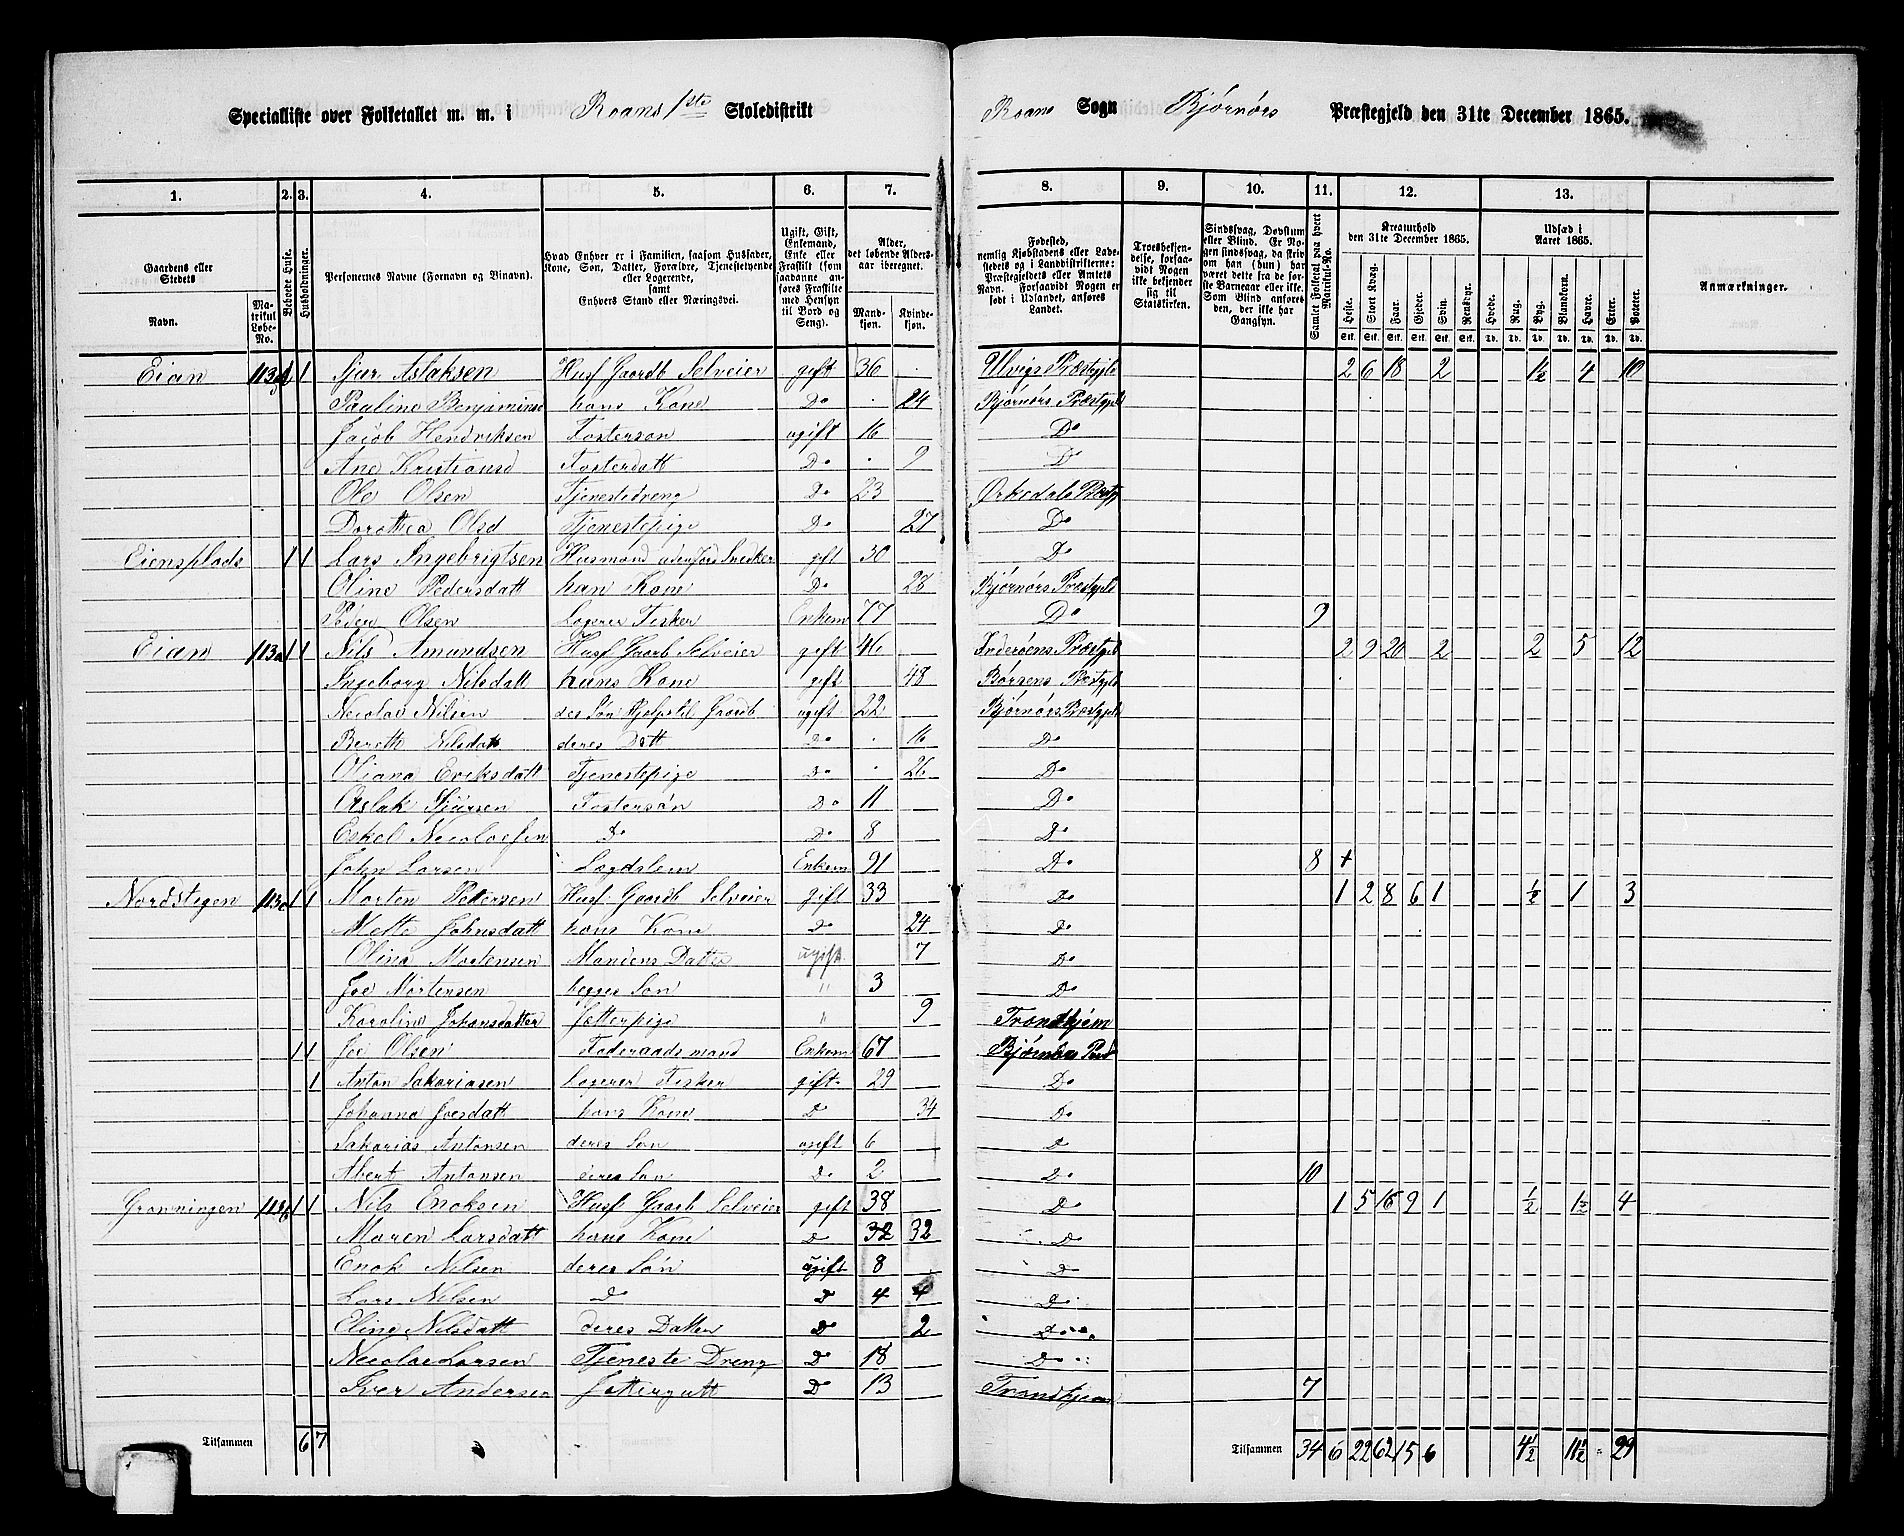 Specialliste over Folketallet m. m. i Roans 1ste Skoledistrikt Roans Sogn Bjørnørs Præstegjeld den 31te December 1865.
1. 2. 3. 4. 5. 6. 7. 8. 9. 10. 11. 12. 13.
Gaardens eller Stedets Navn. Matrikul Løbe-No. Beboede Huse. Husholdninger. Personernes Navne (Fornavn og Tilnavn).
Hvad Enhver er i Familien, saasom Husfader, Kone, Søn, Datter, Forældre, Tjenestetyende eller Logerende, samt Enhvers Stand eller Næringsvei.
Ugift, Gift, Enkemand, Enke eller Fraskilt (som saadanne anføres Fraskilte med Hensyn til Bord og Seng).
Alder, det løbende Alders-aar iberegnet. Mand-kjøn. Kvinde-kjøn.
Fødested, nemlig Kjøbstadens eller Ladestedets og i Landdistrikterne: Præstegjeldets eller Amtets Navn. Forsaavidt Nogen er født i Udlandet, anføres Landet.
Troesbekjendelse, forsaavidt Nogen ikke bekjender sig til Statskirken.
Sindssvag, Døvstum eller Blind. Er Nogen sindssvag, da skriv om han (hun) har været dette fra de første Barneaar eller ikke. Som Blind anføres den, der ikke har Gangsyn.
Samlet Folketal paa hvert Matrikul-No.
Kreaturhold den 31te December 1865. Heste. Stort Kvæg. Faar. Gjeder. Svin. Rensdyr.
Udsæd i Aaret 1865. Hvede. Rug. Byg. Blandkorn. Havre. Erter. Poteter.
Anmærkninger.
Eian 113 1 1 Sjur Aslaksen Husf Gaardb Selveier gift 36 Ulvigs Præstgjld 2 6 18 2 1½ 4 10
Pauline Benjaminsd hans Kone Do 24 Bjørnørs Præstgjld
Jacob Hendriksen Fostersøn ugift 16 Do
Ane Kristiansd Fosterdatt Do 9 D
Ole Olsen Tjenestedreng Do 23 Ørkedals Præstgj
Dorothea Olsd Tjenestepige Do 27 Do
Eiensplads 1 1 Lars Ingebrigtsen Husmand uden Jord Snedker gift 30 Do
Oline Pedersdatt han Kone Do 28 Bjørnørs Præstgjld
Peder Olsen Logerer Fisker Enkem 77 Do 9
Eian 113a 1 1 Nils Amundsen Husf Gaardb Selveier gift 46 Inderøens Præstgjld 2 9 20 2 2 5 12
Ingeborg Nilsdatt hans Kone gift 48 Børsens Præstgjld
Nicolai Nilsen des Søn Hjelpstil Gaardb ugift 22 Bjørnørs Præstgjld
Bereth Nilsdatt deres Datt Do 16 Do
Oliana Eriksdatt Tjenestepige Do 26 Do
Aslak Sjursen Fostersøn Do 11 Do
Eskel Nicolaesen Do Do 8 Do
John Larsen Lægdslem Enkem 91 Do 8 +
Nordstegen 113c 1 1 Morten Pedersen Husf. Gaardb Selveier gift 33 Do 1 2 8 6 1 ½ 1 3
Mette Johnsdatt hans Kone Do 24 Do
Olina Mortensen Mandens Datter ugift 7 Do
Joe Mortensen begges Søn " 3 Do
Karoline Johansdatter Jætterpige " 9 Trondhjem
1 1 Joe Olsen Føderaadsmand Enkem 67 Bjørnørs Præst
1 Anton Sakariasen Logerer Fisker gift 29 Do
Johanna Joesdatt hans Kone D 34 Do
Sakarias Antonsen deres Søn ugift 6 D
Abert Antonsen deres Søn Do 2 Do 10
Grønningen 113b 1 1 Nils Enoksen Husf Gaardb Selveier gift 38 Do 1 5 16 9 1 ½ 1½ 4
Maren Larsdatt hans Kone D 32 32 D
Enok Nilsen deres Søn ugift 8 D
Lars Nilsen D D 4 4 D
Eline Nilsdatt deres Datter D 2 Do
Nicolae Larsen Tjeneste Dreng D 18 Do
Iver Andersen Jættergutt D 13 Trondhjem 7
Tilsammen 6 7 Tilsammen 34 6 22 62 15 6 4½ 11½ 29